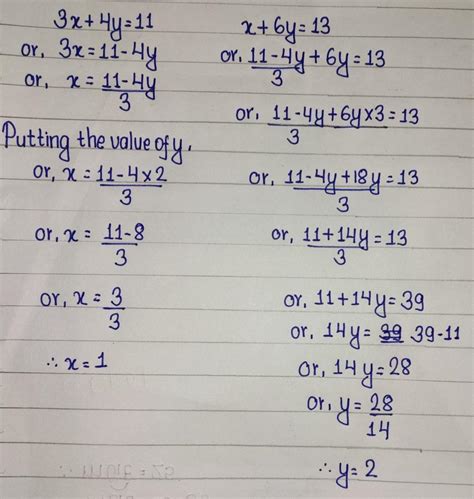 3x+4y=11
or, 3x=11-4y
or, x = 11-4y
3
Putting the value of y,
or, x = 11-4×2
3
or, x = 11-8
3
or, x = 3
3
∴ x=1
x+6y=13
or, 11-4y+6y=13
3
or, 11-4y+6y×3=13
3
or, 11-4y+18y=13
3
or, 11+14y=13
3
or, 11+14y=39
or, 14y= 39 39-11
or, 14y=28
or, y= 28
14
∴ y=2